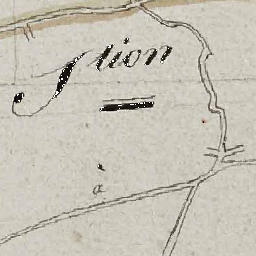 Stion
a